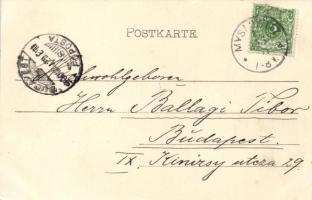 POSTKARTE
MYSL
Hochwohlgeboren
Herrn Ballagi Tibor
Budapest.
IX. Kinizsy utcza 29.